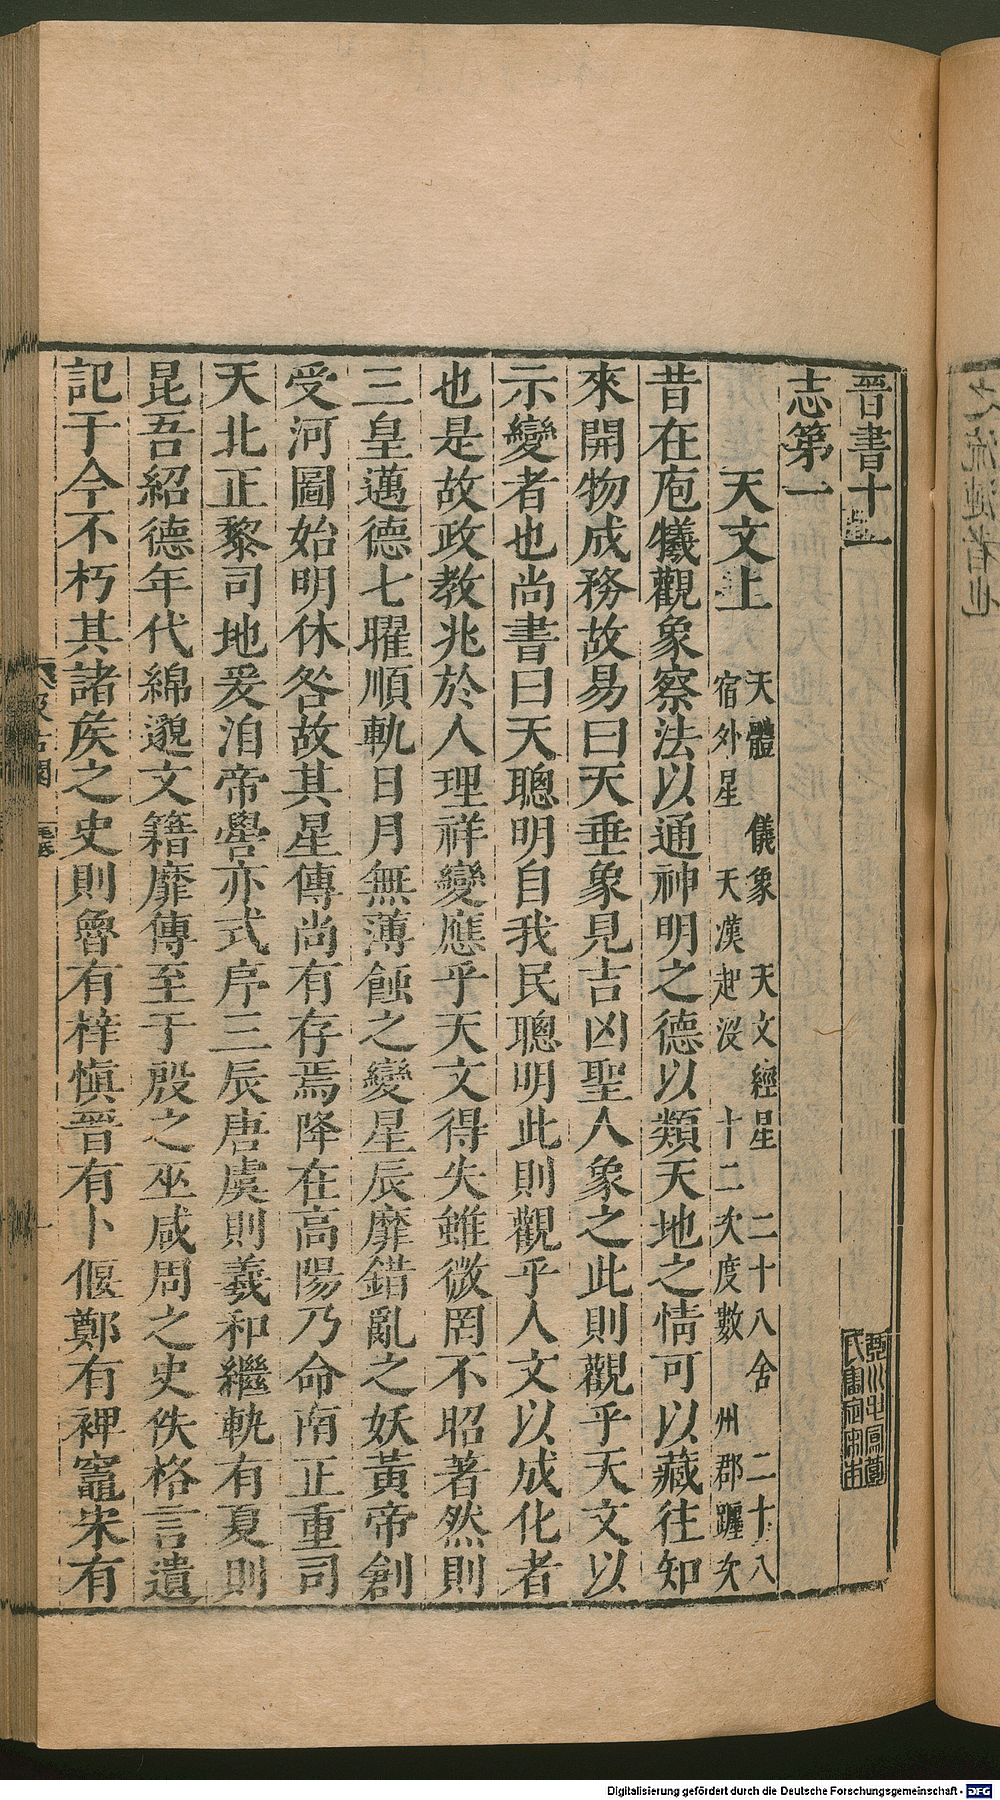 晉書十一
志第一
天文上 天體 儀象 天文經星 二十八舍 二十八
宿外星 天漢起沒 十二次度數 州郡躔次
昔在庖犧觀象察法以通神明之德以類天地之情可以藏往知
來開物成務故易曰天垂象見吉凶聖人象之此則觀乎天文以
示變者也尚書曰天聰明自我民聰明此則觀乎人文以成化者
也是故政教兆於人理祥變應乎天文得失雖微罔不昭著然則
三皇邁德七曜順軌日月無薄蝕之變星辰靡錯亂之妖黃帝創
受河圖始明休咎故其星傳尚有存焉降在高陽乃命南正重司
天北正黎司地爰洎帝嚳亦式序三辰唐虞則羲和繼軌有夏則
昆吾紹德年代綿邈文籍靡傳至于殷之巫咸周之史佚格言遺
記于今不朽其諸矦之史則魯有梓愼晉有卜偃鄭有裨竈宋有
Digitalisierung gefördert durch die Deutsche Forschungsgemeinschaft - DFG